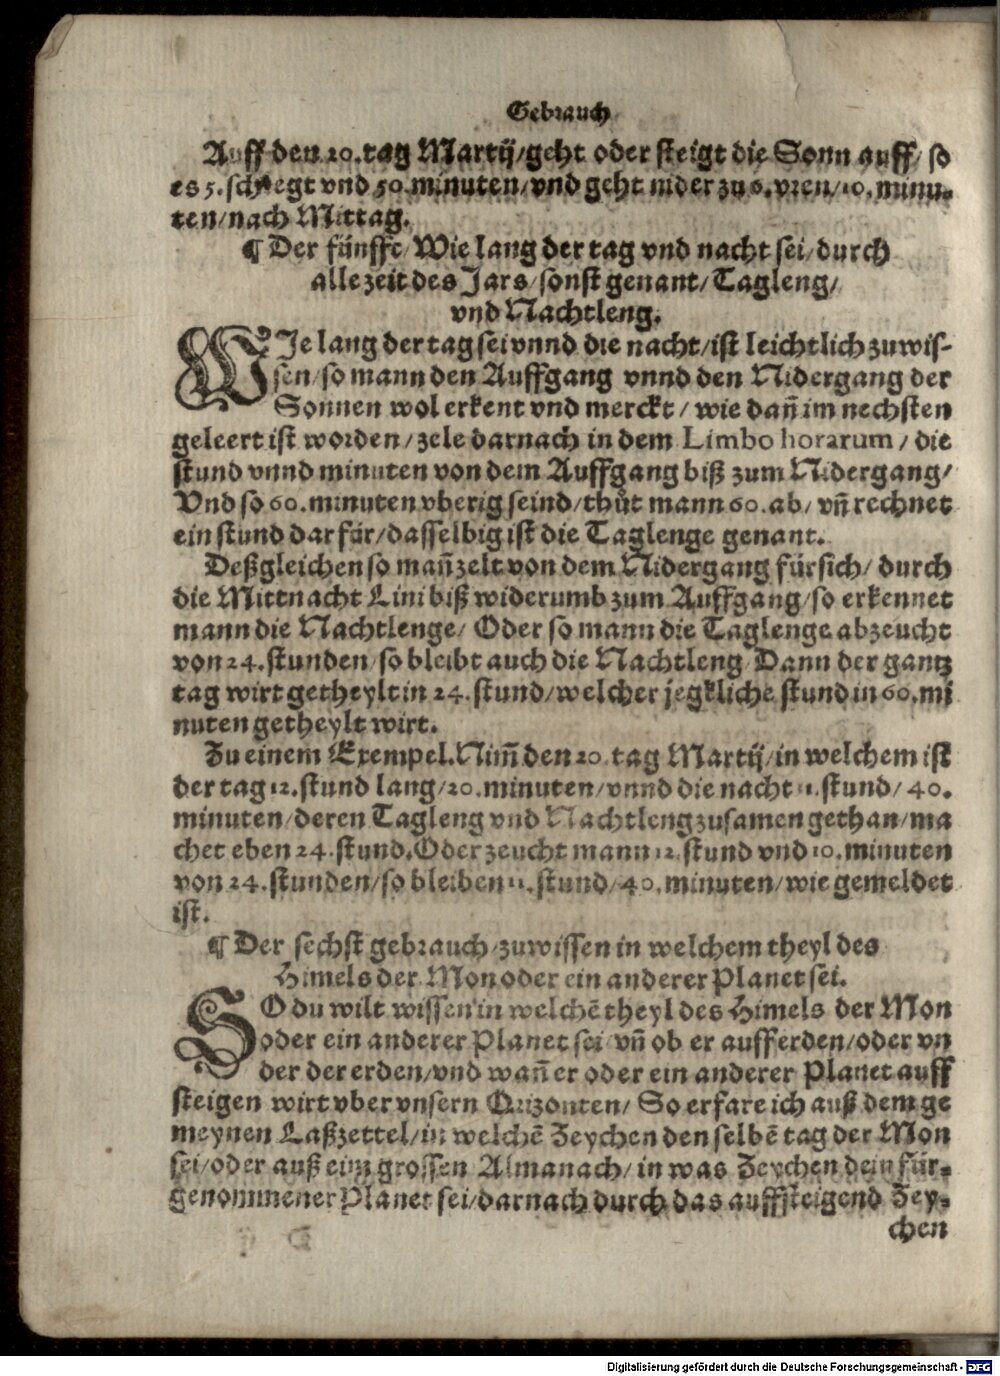 Gebrauch
Auff den 20. tag Martij/geht oder steigt die Sonn auff/ so
es 5. schlegt vnd 50. minuten/vnd geht nider zu 6. vren/10. minu-
ten/nach Mittag.
¶ Der fünffte/Wie lang der tag vnd nacht sei/durch
alle zeit des Jars/sonst genant/Tagleng/
vnd Nachtleng.
WIe lang der tag sei vnnd die nacht/ist leichtlich zuwis-
sen/so mann den Auffgang vnnd den Nidergang der
Sonnen wol erkent vnd merckt/wie dañ im nechsten
geleert ist worden/zele darnach in dem Limbo horarum/die
stund vnnd minuten von dem Auffgang biß zum Nidergang/
Vnd so 60. minuten vberig seind/thůt mann 60. ab/vñ rechnet
ein stund dar für/dasselbig ist die Taglenge genant.
Deßgleichen so mañ zelt von dem Nidergang fürsich/durch
die Mittnacht Lini biß widerumb zum Auffgang/so erkennet
mann die Nachtlenge/Oder so mann die Taglenge abzeucht
von 24. stunden/so bleibt auch die Nachtleng/Dann der gantz
tag wirt getheylt in 24. stund/welcher jegkliche stund in 60. mi
nuten getheylt wirt.
Zu einem Exempel. Nim̃ den 20. tag Martij/in welchem ist
der tag 12. stund lang/20. minuten/vnnd die nacht 11. stund/40.
minuten/deren Tagleng vnd Nachtleng zusamen gethan/ma
chet eben 24. stund. Oder zeucht mann 12. stund vnd 10. minuten
von 24. stunden/so bleiben 11. stund/40. minuten/wie gemeldet
ist.
¶ Der sechst gebrauch/zuwissen in welchem theyl des
Himels der Mon oder ein anderer Planet sei.
SO du wilt wissen in welchẽ theyl des Himels der Mon
oder ein anderer Planet sei/vñ ob er auff erden/oder vn
der der erden/vnd wañ er oder ein anderer Planet auff
steigen wirt vber vnsern Orizonten/So erfare ich auß dem ge
meynen Laßzettel/in welchẽ Zeychen den selbẽ tag der Mon
sei/oder auß eim grossen Almanach/in was Zeychen dein für-
genommener Planet sei/darnach durch das auffsteigend Zey-
chen
Digitalisierung gefördert durch die Deutsche Forschungsgemeinschaft - DFG